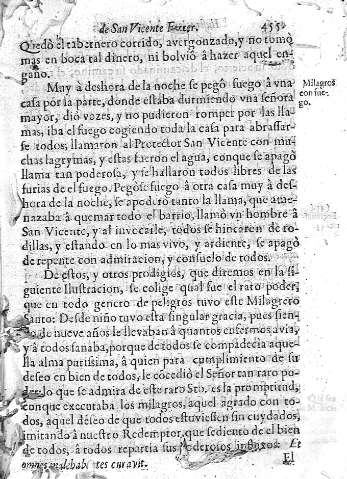 de San Vicente Ferrer. 455.
Quedò el tabernero corrido, avergonzado, y no tomò
mas en boca tal dinero, ni bolviò à hazer aquel en-
gaño.
Muy à deshora de la noche se pegò fuego à vna
casa por la parte, donde estàba durmiendo vna señora
mayor, diò vozes, y no pudieron romper por las lla-
mas, iba el fuego cogiendo toda la casa para abrassar-
se todos; llamaron al Protector San Vicente con mu-
chas lagrymas, y estas fueron el agua, conque se apagò
llama tan poderosa, y se hallaron todos libres de las
furias de el fuego. Pegòse fuego à otra casa muy à des-
hora de la noche, se apoderò tanto la llama, que ame-
nazaba à quemar todo el barrio, llamò vn hombre à
San Vicente, y al invocarle, todos se hincaron de ro-
dillas, y estando en lo mas vivo, y ardiente, se apagò
de repente con admiracion, y consuelo de todos.
De estos, y otros prodigios, que diremos en la si-
guiente Ilustracion, se colige qual fue el raro poder,
que en todo genero de peligros tuvo este Milagrero
Santo: Desde niño tuvo esta singular gracia, pues sien-
do de nueve años le llevaban à quantos enfermos avia,
y à todos sanaba, porque de todos se compadecia aque-
lla alma purissima, à quien para cumplimiento de su
deseo en bien de todos, le cõcediò el Señor tan raro po-
der, lo que se admira de este raro Sto. es la promptitud,
conque executaba los milagros, aquel agrado con to-
dos, aquel deseo de que todos estuviessen sin cuydados,
imitando à nuestro Redemptor, que sediento de el bien
de todos, à todos repartia sus poderosos influxos: Et
omnes malè habentes curavit.
El
Milagros
con fue-
go.